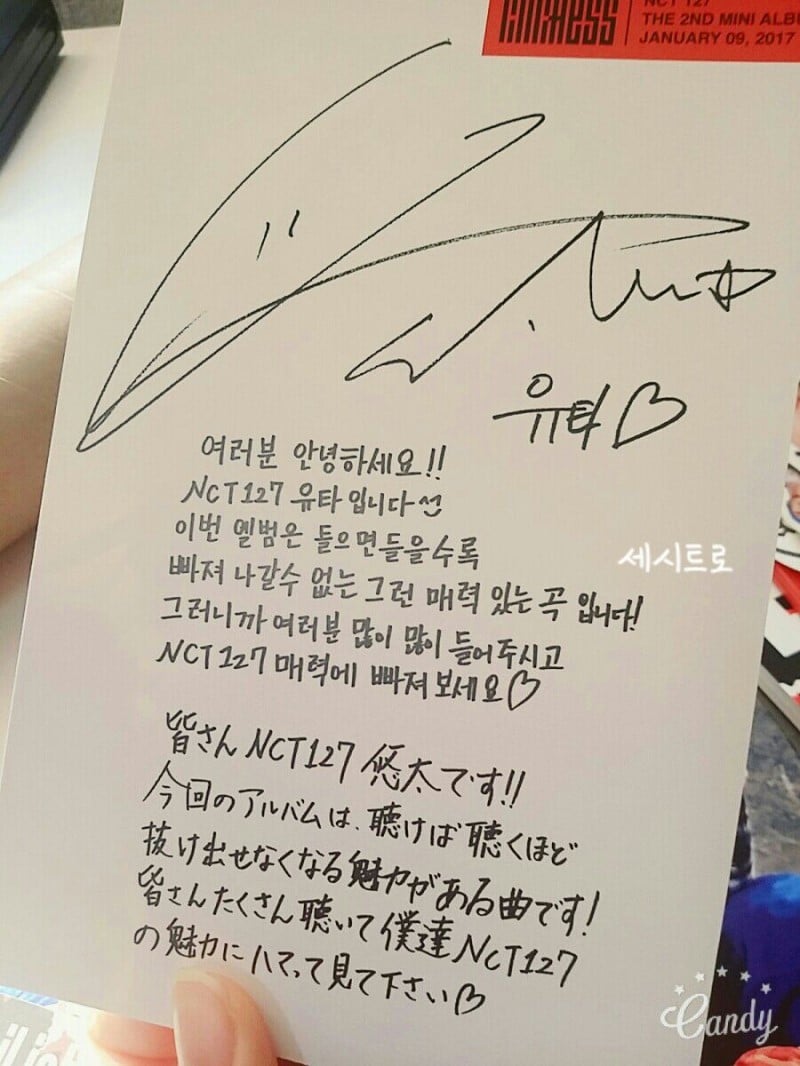 NCT 127
THE 2ND MINI ALBU
JANUARY 09, 2017
유타♡
여러분 안녕하세요!!
NCT127 유타입니다
이번 엘범은 들으면들을수록
빠져 나갈수 없는 그런 매력 있는 곡 입니다!
그러니까 여러분 많이 많이 들어주시고
NCT127 매력에 빠져보세요♡
세시트로
皆さんNCT127 悠太です!!
今回のアルバムは、聴けば聴くほど
抜け出せなくなる魅力がある曲です!
皆さんたくさん聴いて僕達NCT127
の魅力にハマって見て下さい♡
Candy